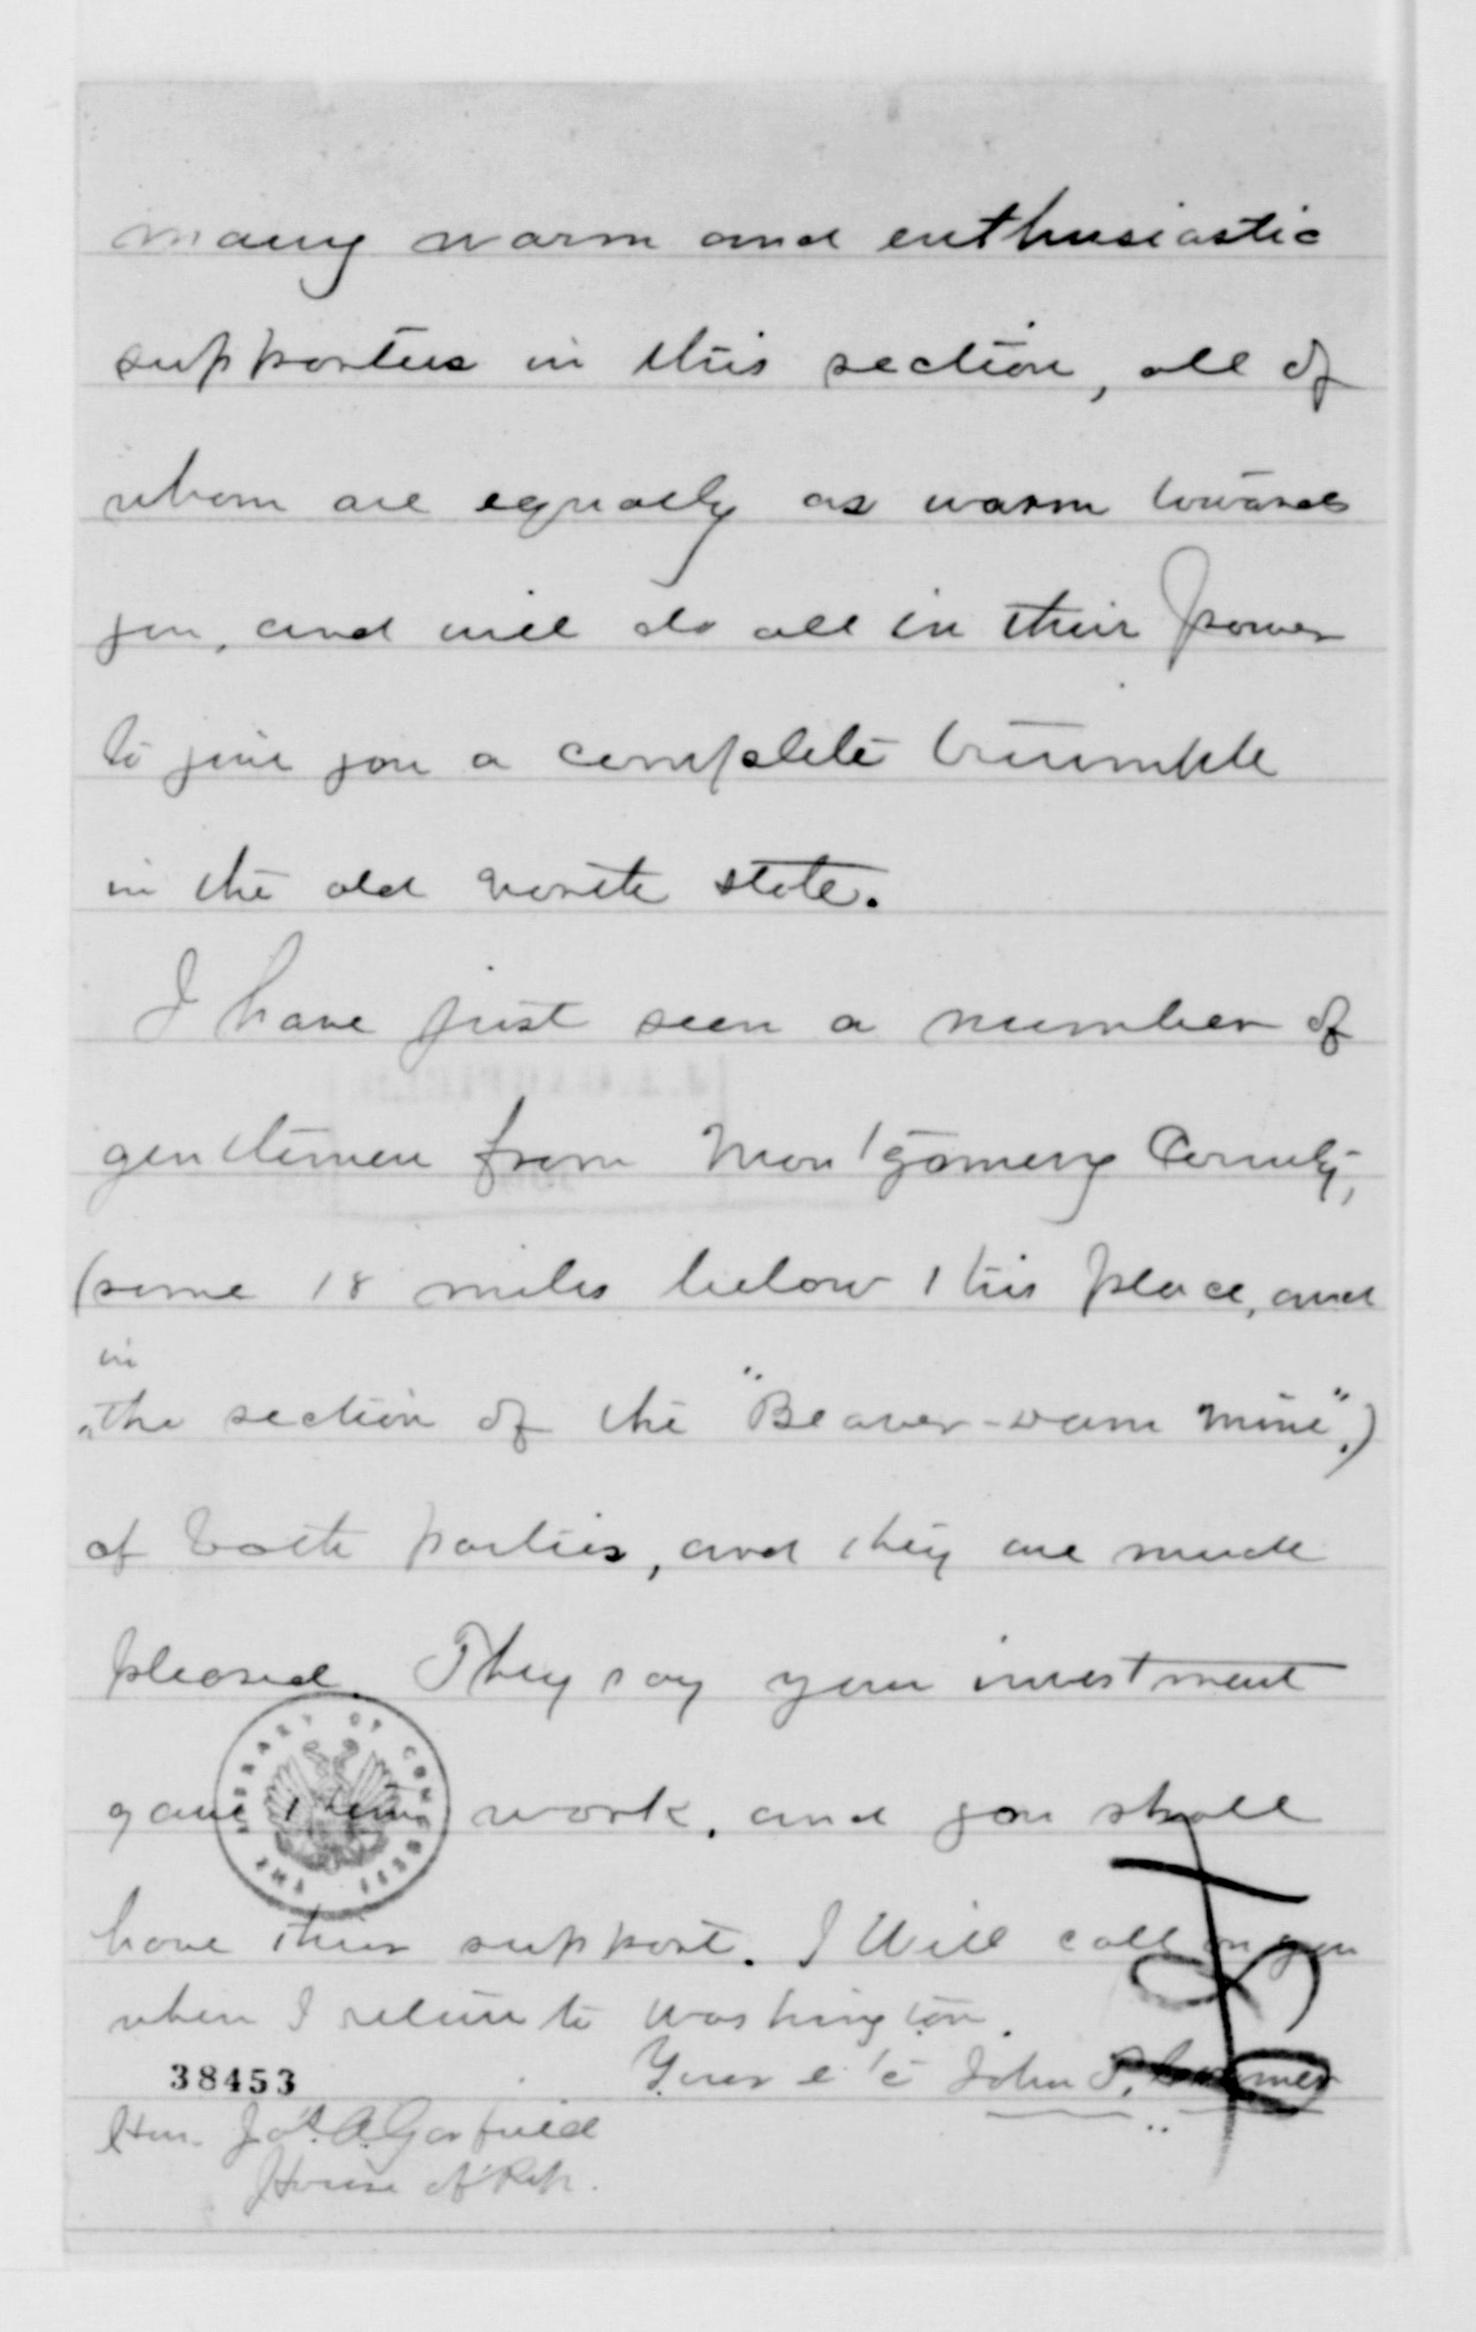 many warm and enthusiastic
supporters in this section, all of
whom are equally as warm towards
you, and will do all in their power
to give you a complete triumph
in the old north state.
I have just seen a number of
gentlemen from Montgomery County,
(some 18 miles below this place, and
in
the section of the "Beaver-dam Mine".)
of both parties, and they are much
pleased. They say your investment
gave them work, and you shall
have their support. I Will call on you
when I return to Washington.
Yours etc John
38453
Hon. Jas. A. Garfield
House of Rep.
THE LIBRARY OF CONGRESS